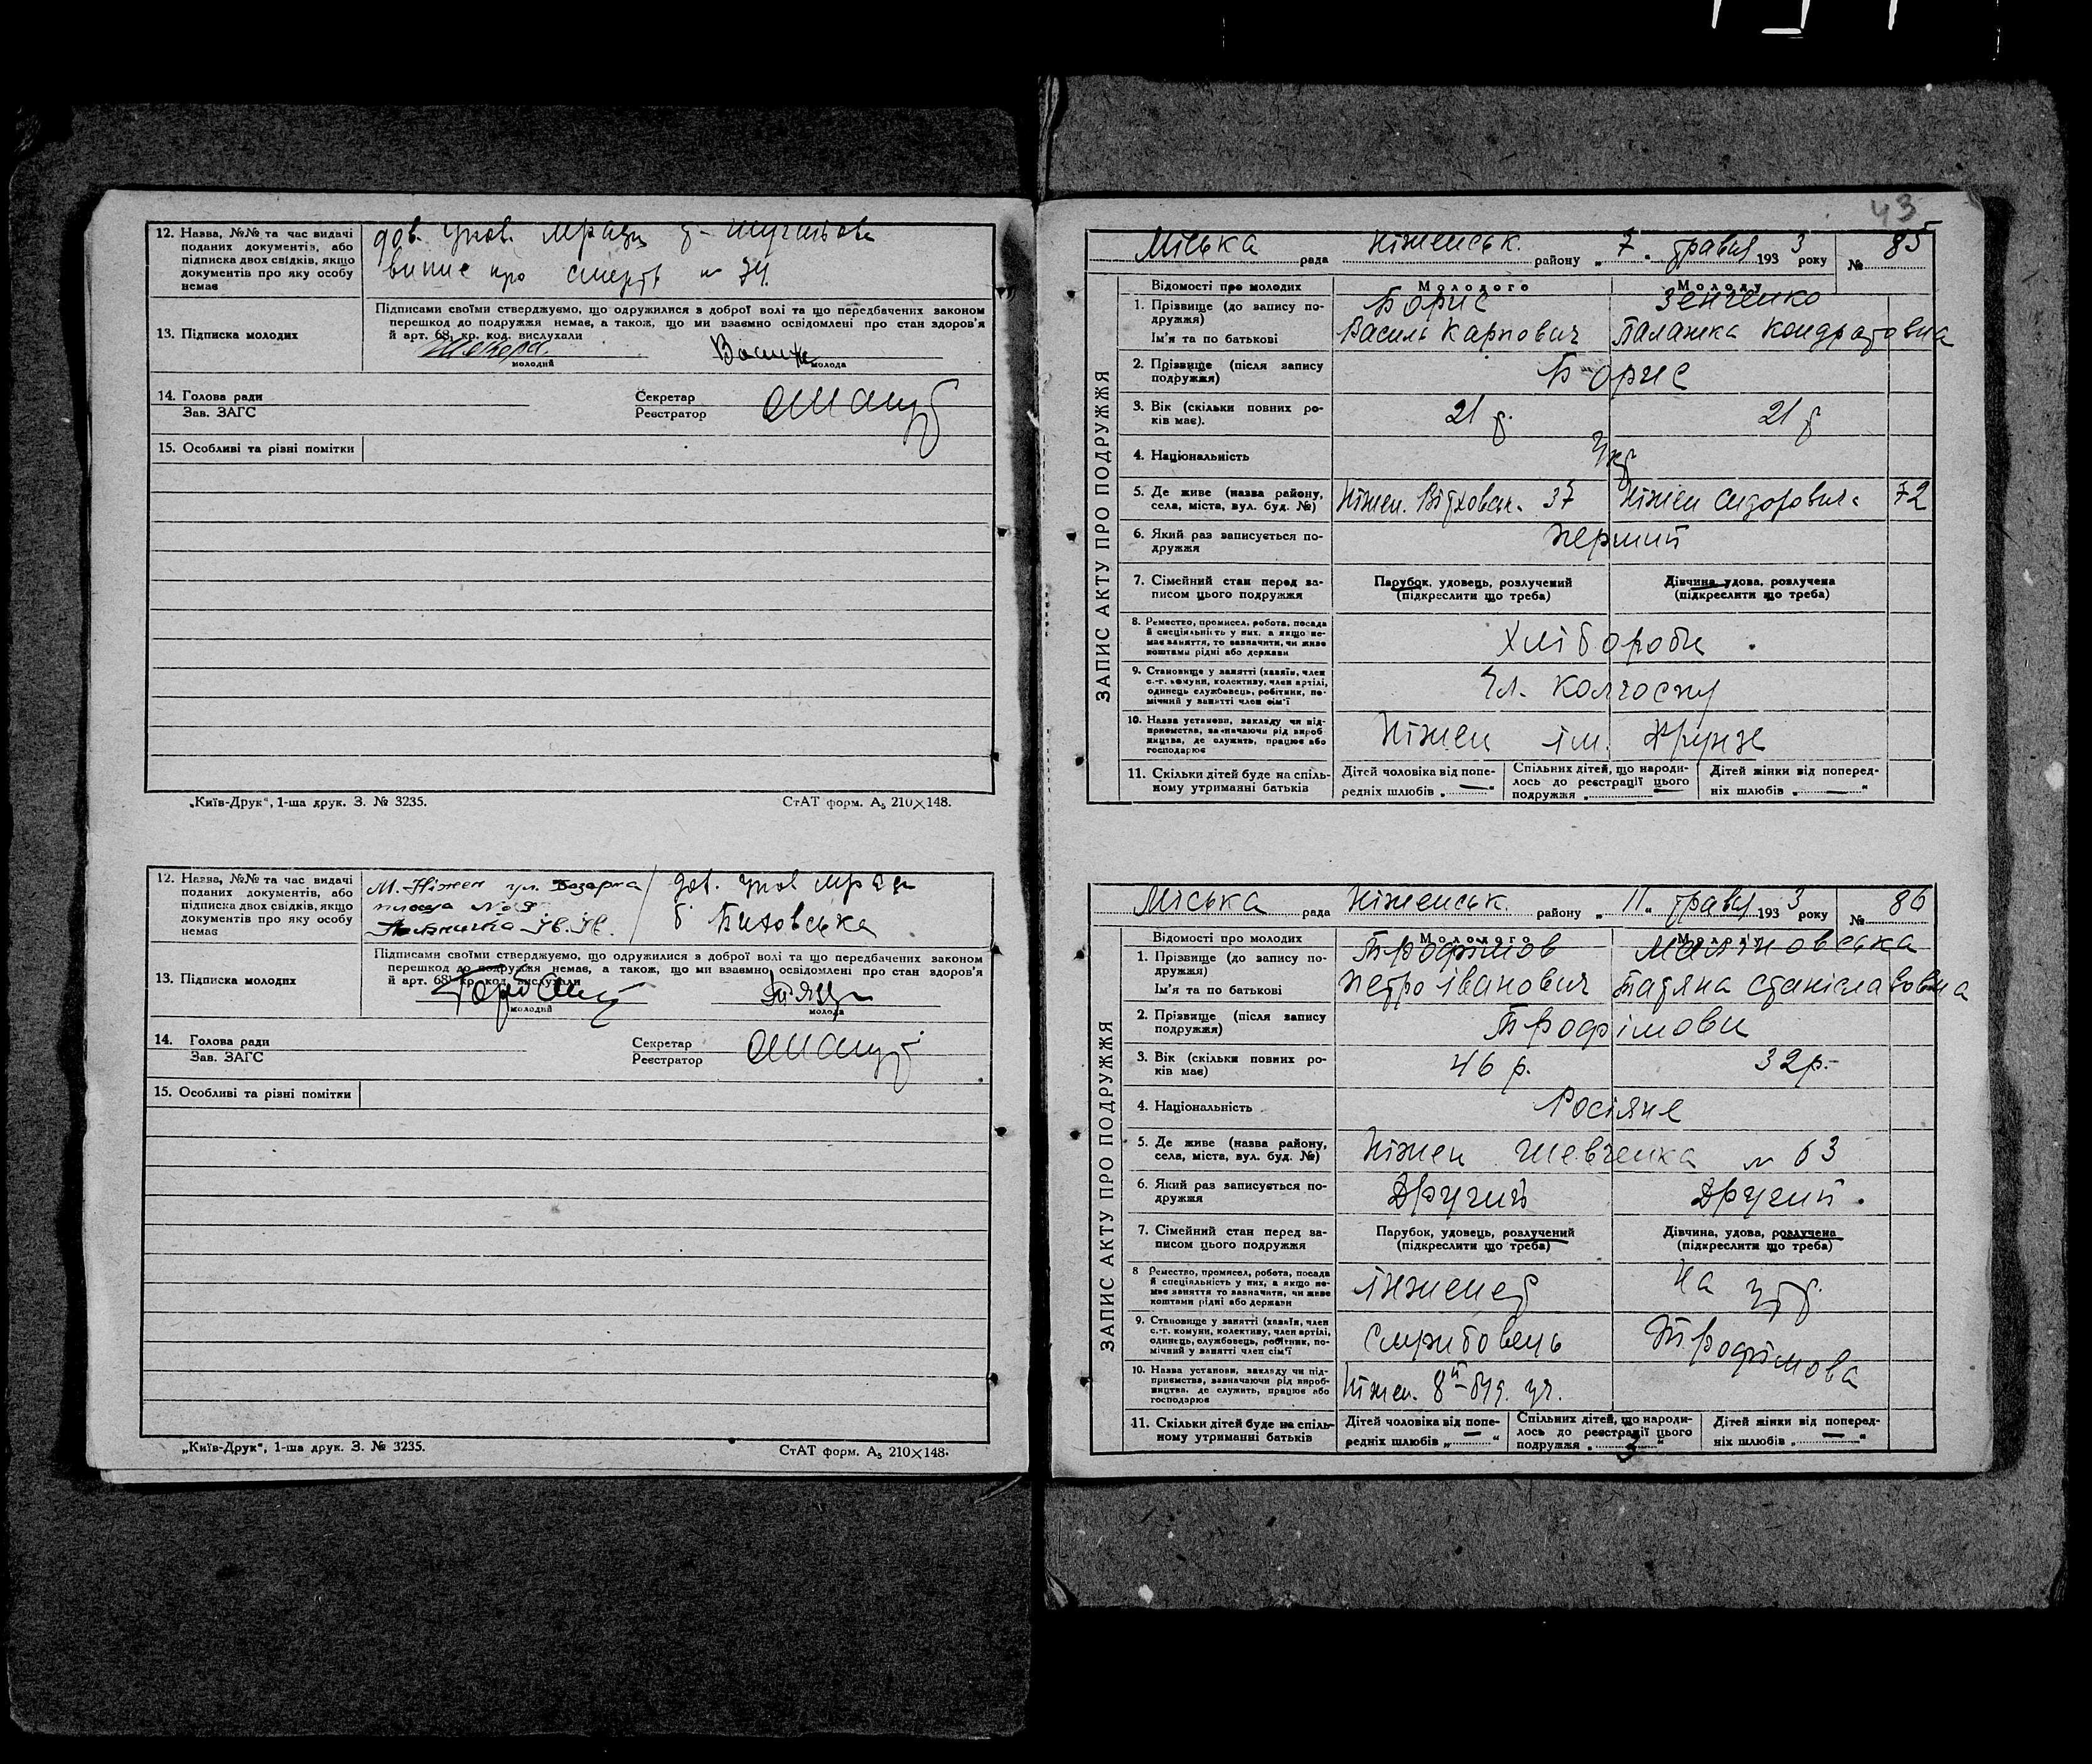 12. Назва, №№ та час видачі
поданих документів, або
підписка двох свідків, якщо
документів про яку особу
немає
дов. упов.
випис про смерть № 74.
13. Підписка молодих
Підписами своїми стверджуємо, що одружилися з доброї волі та що передбачених законом
перешкод до подружжя немає, а також, що ми взаємно освідомлені про стан здоров'я
й арт. 68 кр. код. вислухали
молодий
молода
14. Голова ради
Зав. ЗАГС
Секретар
Реєстратор
15. Особливі та різні помітки
„Київ-Друк“, 1-ша друк. З. № 3235.
СтАТ форм. А₅ 210×148.
12. Назва, №№ та час видачі
поданих документів, або
підписка двох свідків, якщо
документів про яку особу
немає
М. Ніжен ул. Базарна
площа №
дов. упов
13. Підписка молодих
Підписами своїми стверджуємо, що одружилися з доброї волі та що передбачених законом
перешкод до подружжя немає, а також, що ми взаємно освідомлені про стан здоров'я
й арт. 68 кр. код. вислухали
молодий
молода
14. Голова ради
Зав. ЗАГС
Секретар
Реєстратор
15. Особливі та різні помітки
„Київ-Друк“, 1-ша друк. З. № 3235.
СтАТ форм. А₅ 210×148.
43
ЗАПИС АКТУ ПРО ПОДРУЖЖЯ
Міська рада Ніженськ. району „7“ травня 1933 року № 85
Відомості про молодих
Молодого
Молодої
1. Прізвище (до запису подружжя)
Борис
Зенченко
Ім'я та по батькові
Василь Карпович
Палажка Кондратовна
2. Прізвище (після запису
подружжя)
Борис
3. Вік (скільки повних ро-
ків має).
21 р.
21 р
4. Національність
Укр
5. Де живе (назва району,
села, міста, вул. буд. №)
Ніжен. 37
Ніжен 72
6. Який раз записується по-
дружжя
перший
7. Сімейний стан перед за-
писом цього подружжя
Парубок, удовець, розлучений
(підкреслити що треба)
Дівчина, удова, розлучена
(підкреслити що треба)
8. Ремество, промисел, робота, посада
й спеціяльність у них, а якщо не-
має заняття, то зазначити, чи живе
коштами рідні або держави
Хлібороби
9. Становище у занятті (хазяїн, член
с.-г. комуни, колективу, член артілі,
одинець службовець, робітник, по-
мічний у занятті член сім'ї
Чл. колгоспу
10. Назва установи, закладу чи під-
приємства, зазначаючи рід вироб-
ництва, де служить, працює або
господарює
Ніжен ім. Фрунзе
11. Скільки дітей буде на спіль-
ному утриманні батьків
Дітей чоловіка від попе-
редніх шлюбів „—“
Спільних дітей, що народи-
лось до реєстрації цього
подружжя „—“
Дітей жінки від поперед-
ніх шлюбів „—“
ЗАПИС АКТУ ПРО ПОДРУЖЖЯ
Міська рада Ніженськ. району „11“ травня 1933 року № 86
Відомості про молодих
Молодого
Молодої
1. Прізвище (до запису по-
дружжя)
Трофімов
Ім'я та по батькові
Петро Іванович
Татяна Станіславовна
2. Прізвище (після запису
подружжя)
Трофімови
3. Вік (скільки повних ро-
ків має)
46 р.
32 р.
4. Національність
Росіяне
5. Де живе (назва району,
села, міста, вул. буд. №)
Ніжен Шевченка № 63
6. Який раз записується по-
дружжя
Другий
Другий.
7. Сімейний стан перед за-
писом цього подружжя
Парубок, удовець, розлучений
(підкреслити що треба)
Дівчина, удова, розлучена
(підкреслити що треба)
8 Ремество, промисел, робота, посада
й спеціяльність у них, а якщо не-
має заняття то зазначити, чи живе
коштами рідні або держави
інженер
На
9. Становище у занятті (хазяїн, член
с.-г. комуни, колективу, член артілі,
одинець, службовець, робітник, по-
мічний у занятті член сім'ї
Службовець
Трофімова
10. Назва установи, закладу чи під-
приємства, зазначаючи рід вироб-
ництва, де служить, працює або
господарює
Ніжен. 8й буд. уч.
11. Скільки дітей буде на спіль-
ному утриманні батьків
Дітей чоловіка від попе-
редніх шлюбів „—“
Спільних дітей, що народи-
лось до реєстрації цього
подружжя „3“
Дітей жінки від поперед-
ніх шлюбів „—“